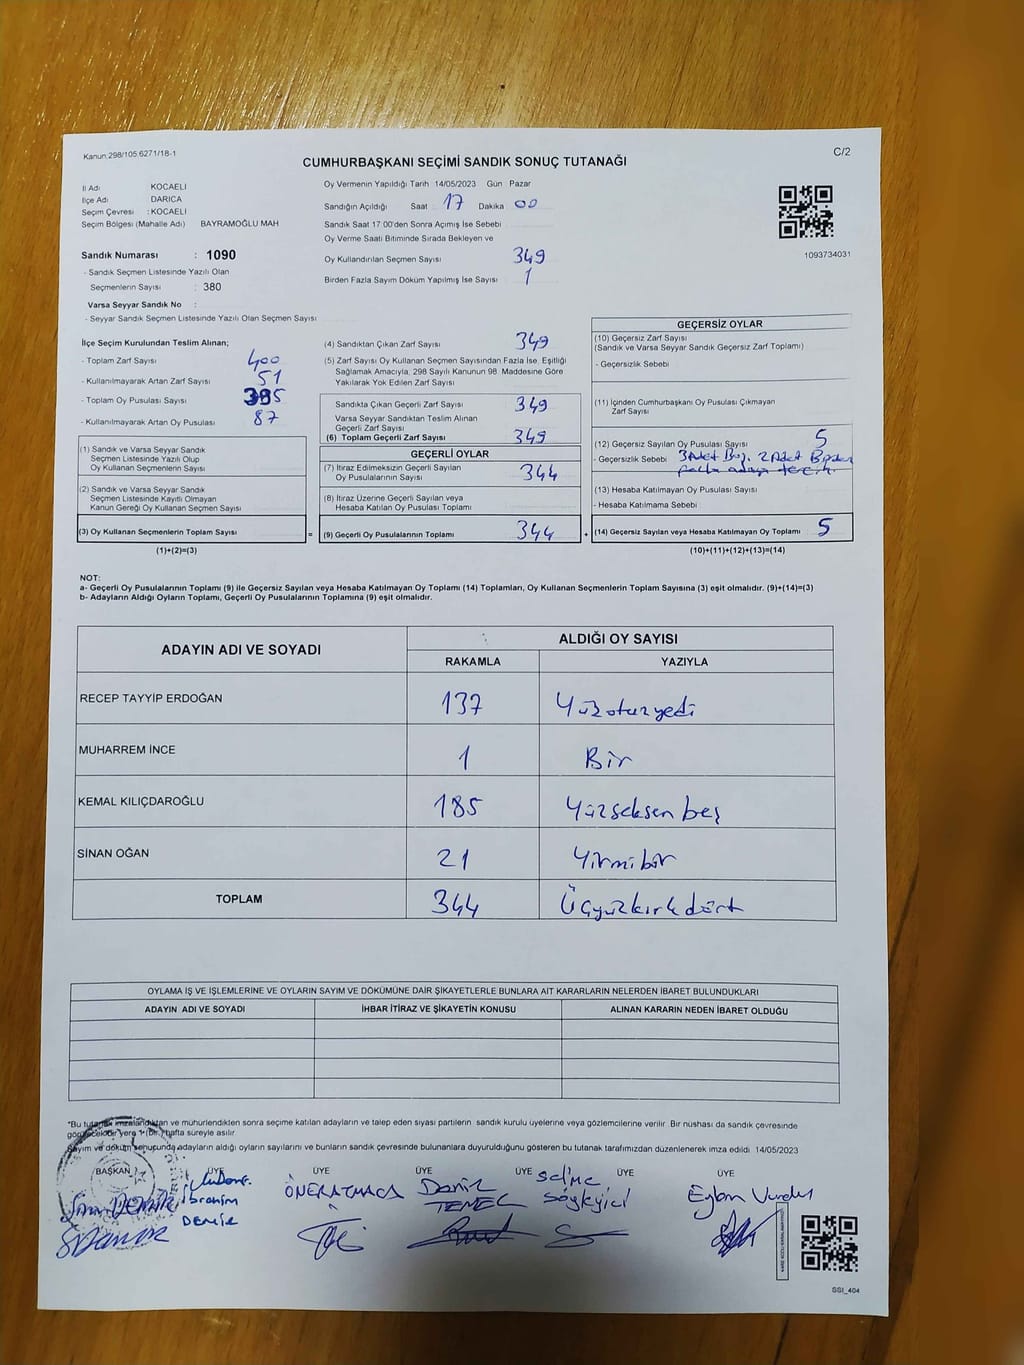 Kanun:298/105.6271/18-1
C/2
CUMHURBAŞKANI SEÇİMİ SANDIK SONUÇ TUTANAĞI
İl Adı KOCAELİ
İlçe Adı DARICA
Seçim Çevresi : KOCAELİ
Seçim Bölgesi (Mahalle Adı) BAYRAMOĞLU MAH
Sandık Numarası : 1090
- Sandık Seçmen Listesinde Yazılı Olan
Seçmenlerin Sayısı : 380
Varsa Seyyar Sandık No :
- Seyyar Sandık Seçmen Listesinde Yazılı Olan Seçmen Sayısı :
Oy Vermenin Yapıldığı Tarih 14/05/2023 Gün Pazar
Sandığın Açıldığı Saat 17 Dakika 00
Sandık Saat 17:00'den Sonra Açımış İse Sebebi
Oy Verme Saati Bitiminde Sırada Bekleyen ve
Oy Kullandırılan Seçmen Sayısı 349
Birden Fazla Sayım Döküm Yapılmış İse Sayısı 1
1093734031
İlçe Seçim Kurulundan Teslim Alınan;
- Toplam Zarf Sayısı 400
- Kullanılmayarak Artan Zarf Sayısı 51
- Toplam Oy Pusulası Sayısı
- Kullanılmayarak Artan Oy Pusulası 87
(1) Sandık ve Varsa Seyyar Sandık
Seçmen Listesinde Yazılı Olup
Oy Kullanan Seçmenlerin Sayısı
(2) Sandık ve Varsa Seyyar Sandık
Seçmen Listesinde Kayıtlı Olmayan
Kanun Gereği Oy Kullanan Seçmen Sayısı
(3) Oy Kullanan Seçmenlerin Toplam Sayısı
(1)+(2)=(3)
=
(4) Sandıktan Çıkan Zarf Sayısı 349
(5) Zarf Sayısı Oy Kullanan Seçmen Sayısından Fazla İse, Eşitliği
Sağlamak Amacıyla, 298 Sayılı Kanunun 98. Maddesine Göre
Yakılarak Yok Edilen Zarf Sayısı
Sandıkta Çıkan Geçerli Zarf Sayısı 349
Varsa Seyyar Sandıktan Teslim Alınan
Geçerli Zarf Sayısı
(6) Toplam Geçerli Zarf Sayısı 349
GEÇERLİ OYLAR
(7) İtiraz Edilmeksizin Geçerli Sayılan
Oy Pusulalarının Sayısı 344
(8) İtiraz Üzerine Geçerli Sayılan veya
Hesaba Katılan Oy Pusulası Toplamı
(9) Geçerli Oy Pusulalarının Toplamı 344
+
GEÇERSİZ OYLAR
(10) Geçersiz Zarf Sayısı
(Sandık ve Varsa Seyyar Sandık Geçersiz Zarf Toplamı)
- Geçersizlik Sebebi
(11) İçinden Cumhurbaşkanı Oy Pusulası Çıkmayan
Zarf Sayısı
(12) Geçersiz Sayılan Oy Pusulası Sayısı 5
- Geçersizlik Sebebi 3 Adet Boş. 2 Adet Birden
fazla adaya tercih
(13) Hesaba Katılmayan Oy Pusulası Sayısı
- Hesaba Katılmama Sebebi
(14) Geçersiz Sayılan veya Hesaba Katılmayan Oy Toplamı 5
(10)+(11)+(12)+(13)=(14)
NOT:
a- Geçerli Oy Pusulalarının Toplamı (9) ile Geçersiz Sayılan veya Hesaba Katılmayan Oy Toplamı (14) Toplamları, Oy Kullanan Seçmenlerin Toplam Sayısına (3) eşit olmalıdır. (9)+(14)=(3)
b- Adayların Aldığı Oyların Toplamı, Geçerli Oy Pusulalarının Toplamına (9) eşit olmalıdır.
ADAYIN ADI VE SOYADI
ALDIĞI OY SAYISI
RAKAMLA YAZIYLA
RECEP TAYYİP ERDOĞAN 137 Yüzotuzyedi
MUHARREM İNCE 1 Bir
KEMAL KILIÇDAROĞLU 185 Yüzseksen beş
SİNAN OĞAN 21 Yirmibir
TOPLAM 344 Üçyüzkırkdört
OYLAMA İŞ VE İŞLEMLERİNE VE OYLARIN SAYIM VE DÖKÜMÜNE DAİR ŞİKAYETLERLE BUNLARA AİT KARARLARIN NELERDEN İBARET BULUNDUKLARI
ADAYIN ADI VE SOYADI İHBAR İTİRAZ VE ŞİKAYETİN KONUSU ALINAN KARARIN NEDEN İBARET OLDUĞU
*Bu tutanak imzalandıktan ve mühürlendikten sonra seçime katılan adayların ve talep eden siyasi partilerin, sandık kurulu üyelerine veya gözlemcilerine verilir. Bir nüshası da sandık çevresinde
görülecek yere 1 (bir) hafta süreyle asılır.
Sayım ve döküm sonucunda adayların aldığı oyların sayılarını ve bunların sandık çevresinde bulunanlara duyurulduğunu gösteren bu tutanak tarafımızdan düzenlenerek imza edildi. 14/05/2023
BAŞKAN ÜYE ÜYE ÜYE ÜYE ÜYE ÜYE
İbrahim
DEMİR
ÖNER ATMACA
Deniz
TEMEL
Selime
Söyleyici
SSI_404